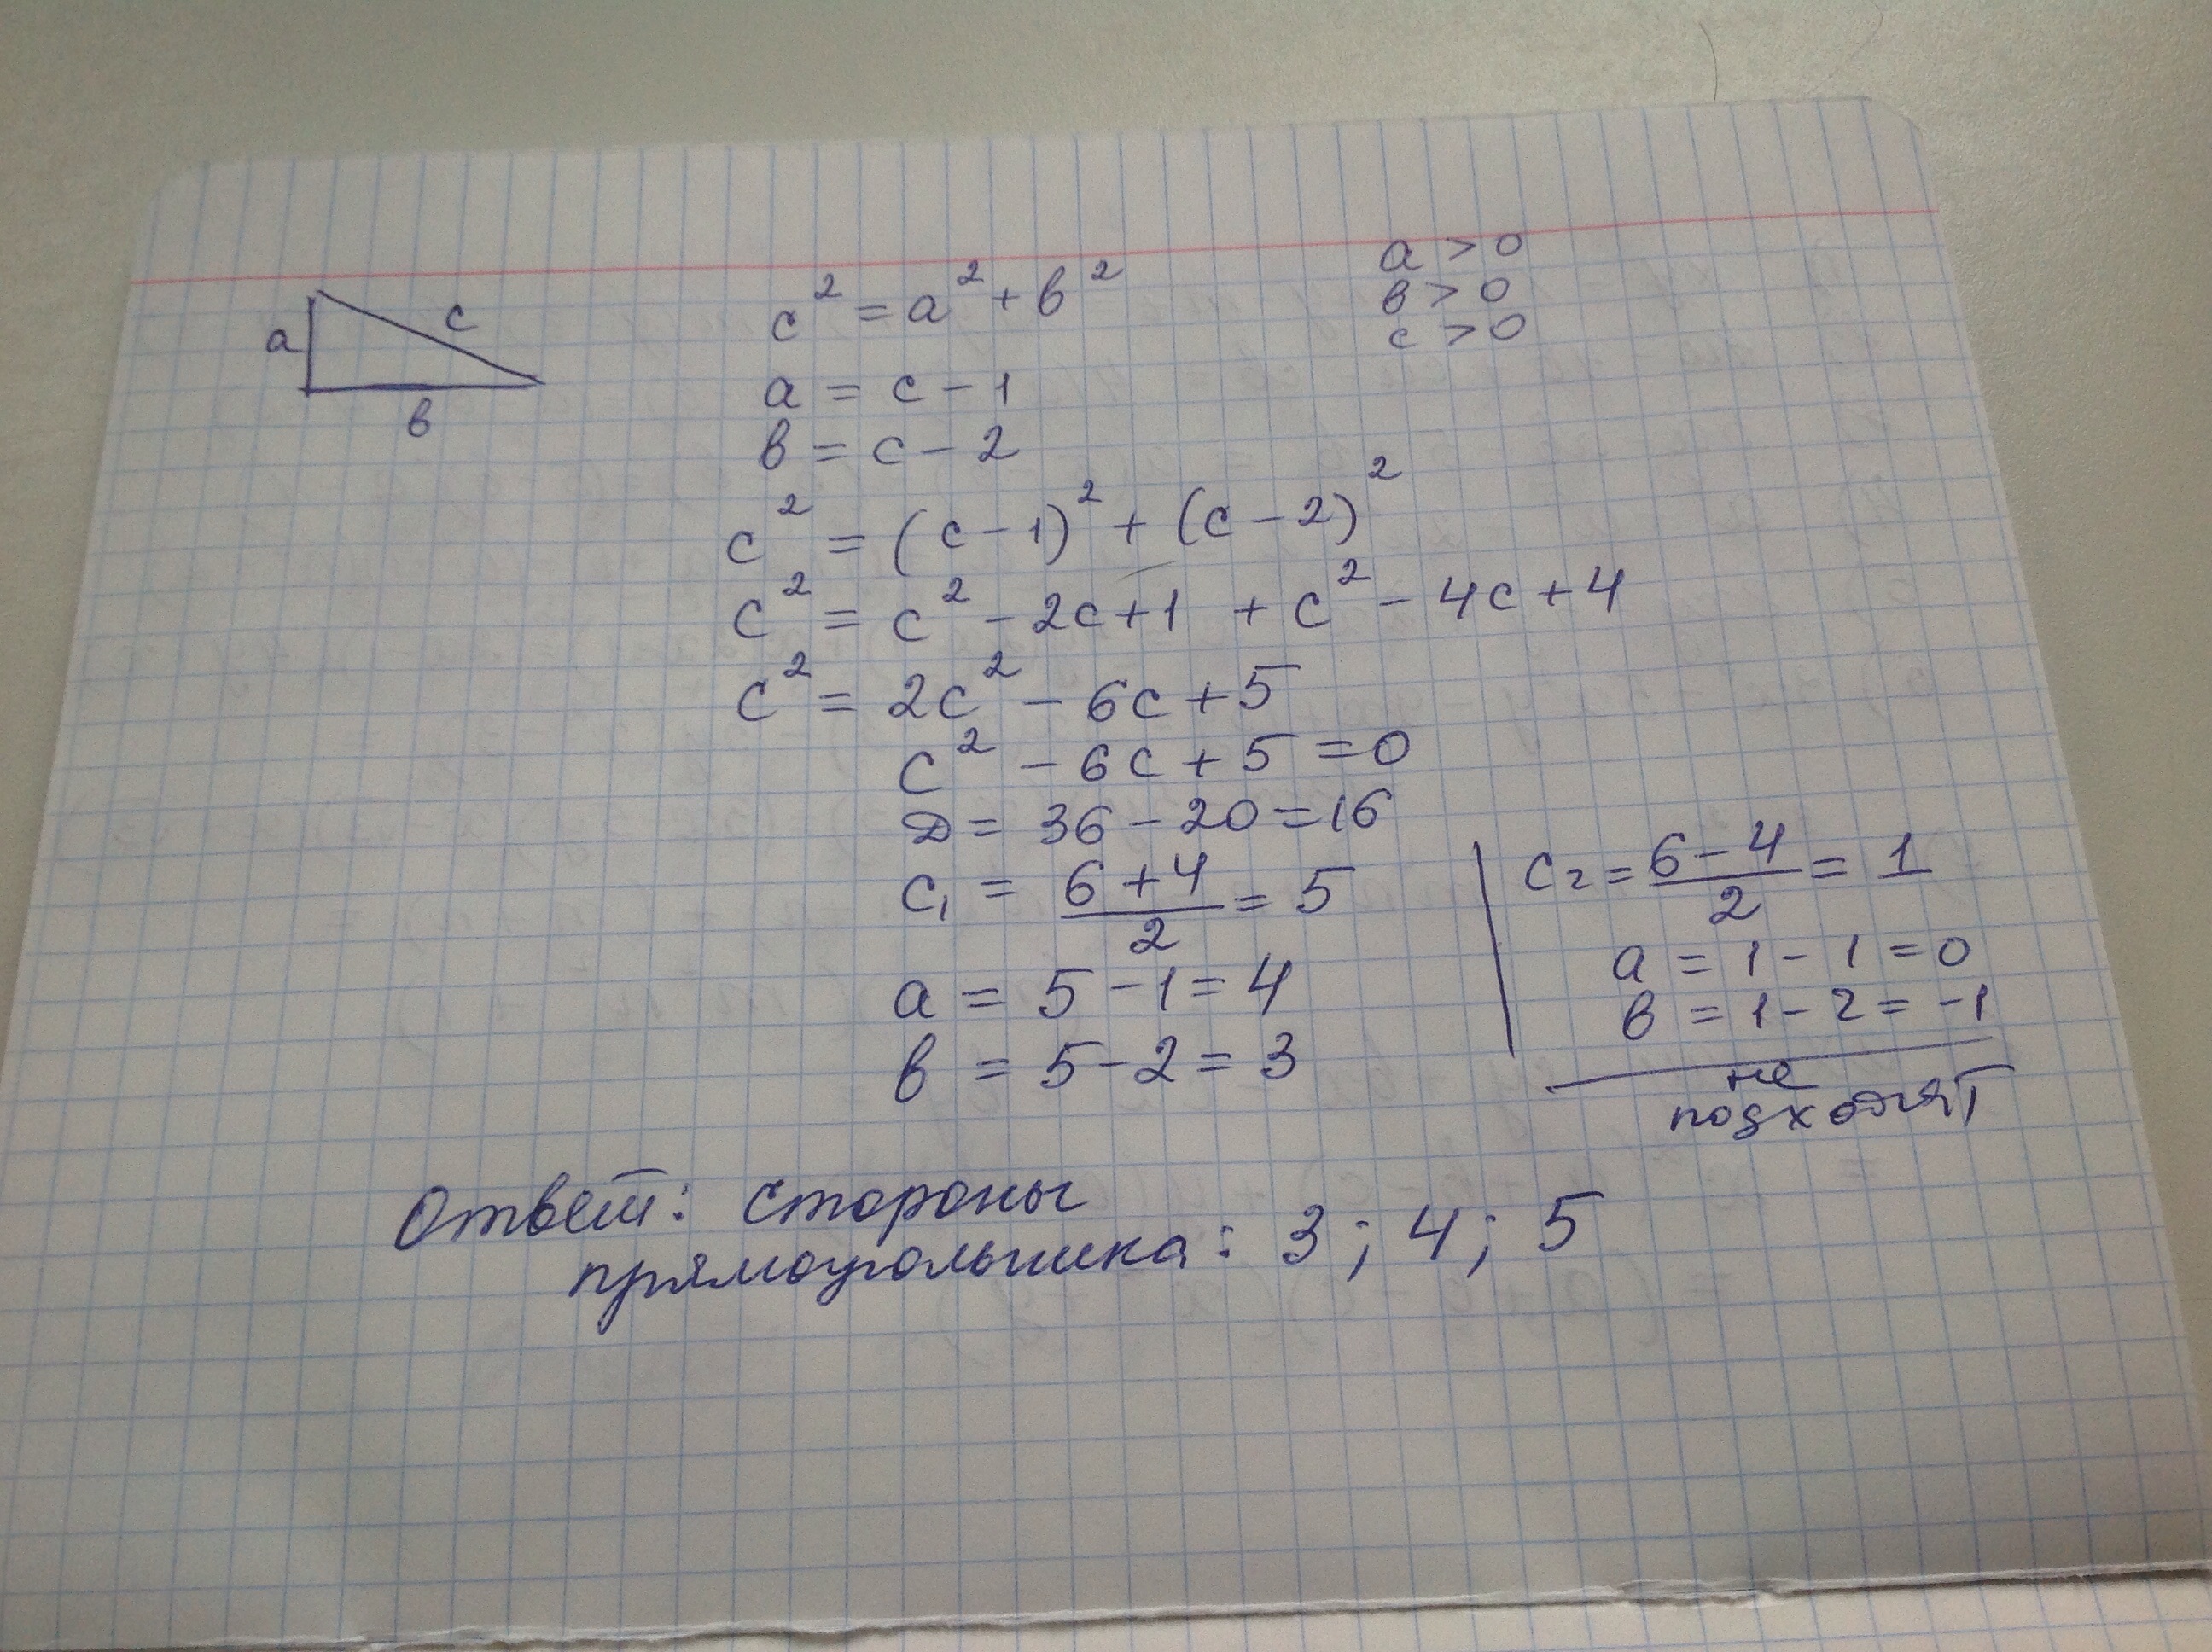 a
c
в
c² = a² + в²
a > 0
в > 0
c > 0
a = c - 1
в = c - 2
c² = (c - 1)² + (c - 2)²
c² = c² - 2c + 1 + c² - 4c + 4
c² = 2c² - 6c + 5
c² - 6c + 5 = 0
D = 36 - 20 = 16
c₁ = (6 + 4)/2 = 5
a = 5 - 1 = 4
в = 5 - 2 = 3
c₂ = (6 - 4)/2 = 1
a = 1 - 1 = 0
в = 1 - 2 = -1
не
подходят
Ответ: стороны
прямоугольника: 3; 4; 5